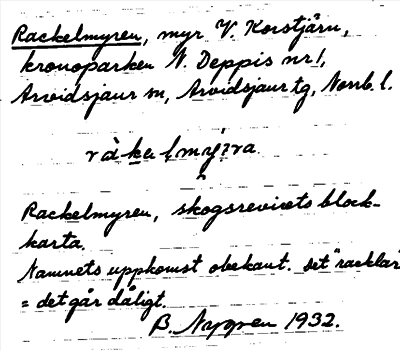 Rackelmyren, myr V. Korstjärn,
kronoparken N. Deppis nr 1,
Arvidsjaur sn, Arvidsjaur tg, Norrb. l.
Rackelmyren, skogsrevirets block-
karta.
Namnets uppkomst obekant. Det "racklar"
= det går dåligt.
B. Nygren 1932.